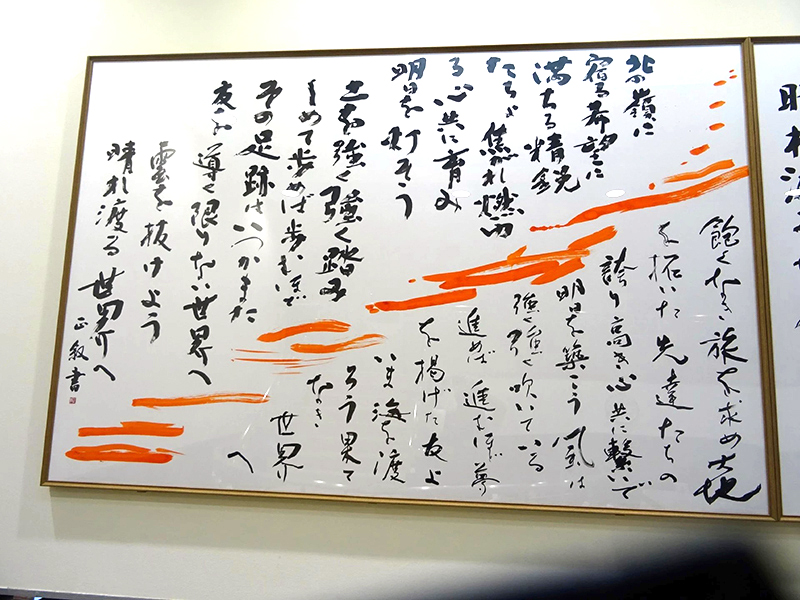 北の嶺に
宿る希望に
満ちる精鋭
たちよ 焦がれ燃ゆ
る心共に育み
明日を灯そう
土を強く強く踏み
しめて歩めば歩むほど
その足跡はいつかまた
友を導く限りない世界へ
雲を抜けよう
晴れ渡る世界へ
正敍書
飽くなき旅を求め
を拓いた先達たちの
誇り高き心共に繋いで
明日を築こう 風は
強く強く吹いている
進めば進むほど夢
を掲げた友よ
いま海を渡
ろう果て
なき
世界
へ
晴れ渡